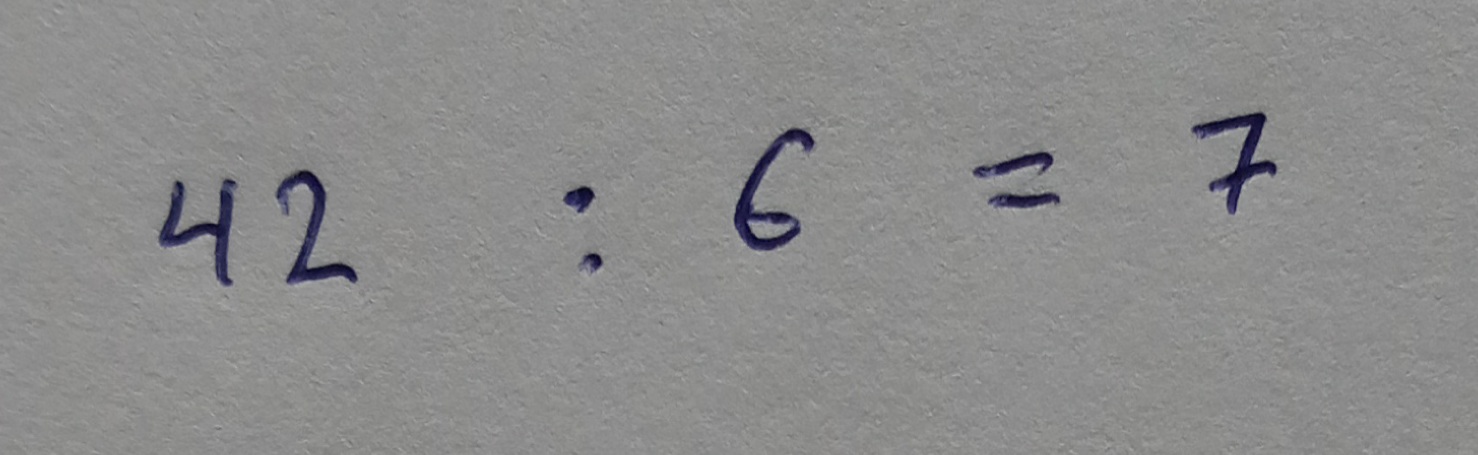 42 : 6 = 7